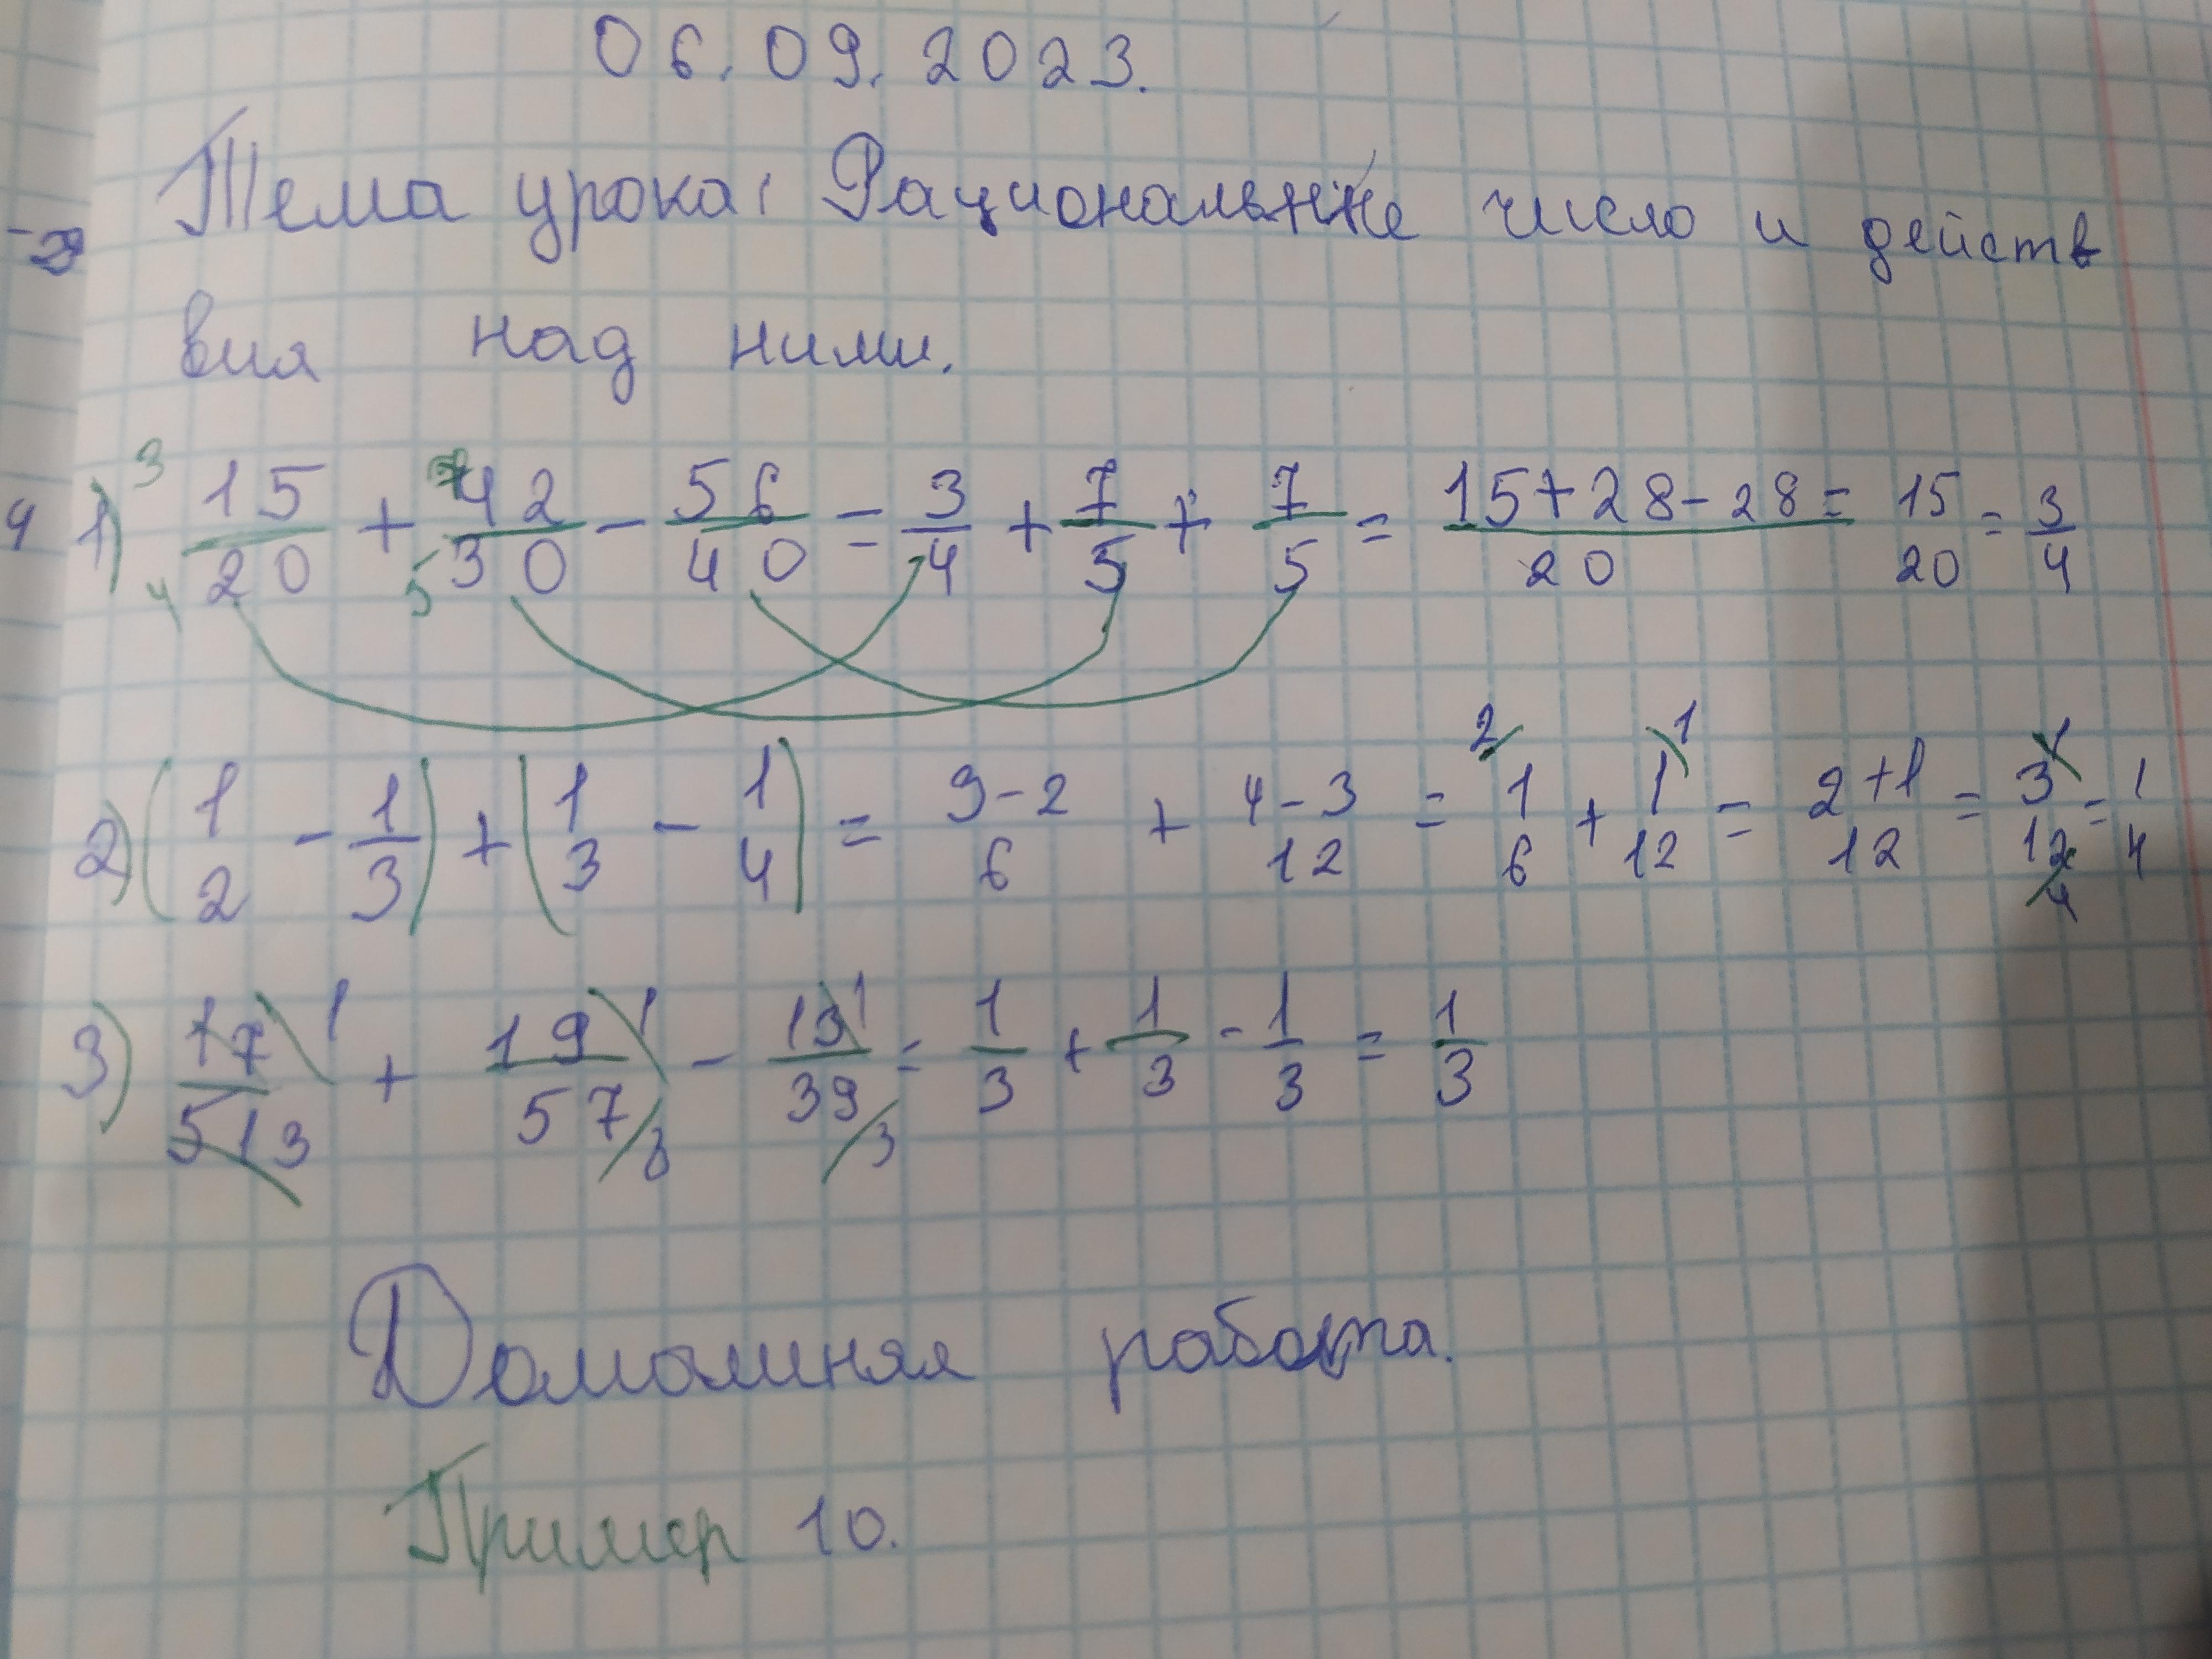 06.09.2023.
Тема урока: Рациональные число и действ
вия над ними.
4 1) 15/20 + 42/30 - 56/40 = 3/4 + 7/5 + 7/5 = 15+28-28/20 = 15/20 = 3/4
2) (1/2 - 1/3) + (1/3 - 1/4) = 3-2/6 + 4-3/12 = 1/6 + 1/12 = 2+1/12 = 3/12 = 1/4
3) 17/51 + 19/57 - 13/39 = 1/3 + 1/3 - 1/3 = 1/3
Домашняя работа.
Пример 10.